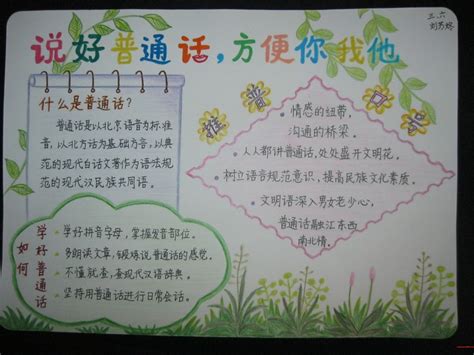 说好普通话，方便你我他
三.六
什么是普通话？
普通话是以北京语音为标准
音，以北方话为基础方言，以典
范的现代白话文著作为语法规
范的现代汉民族共同语。
推普口号
·情感的纽带，
沟通的桥梁。
·人人都讲普通话，处处盛开文明花。
·树立语言规范意识，提高民族文化素质。
·文明语深入男女老少心，
普通话融江东西
南北情。
如何
学好普通话
·学好拼音字母，掌握发音部位。
·多朗读文章，锻炼说普通话的感觉。
·不懂就查，查现代汉语辞典。
·坚持用普通话进行日常会话。